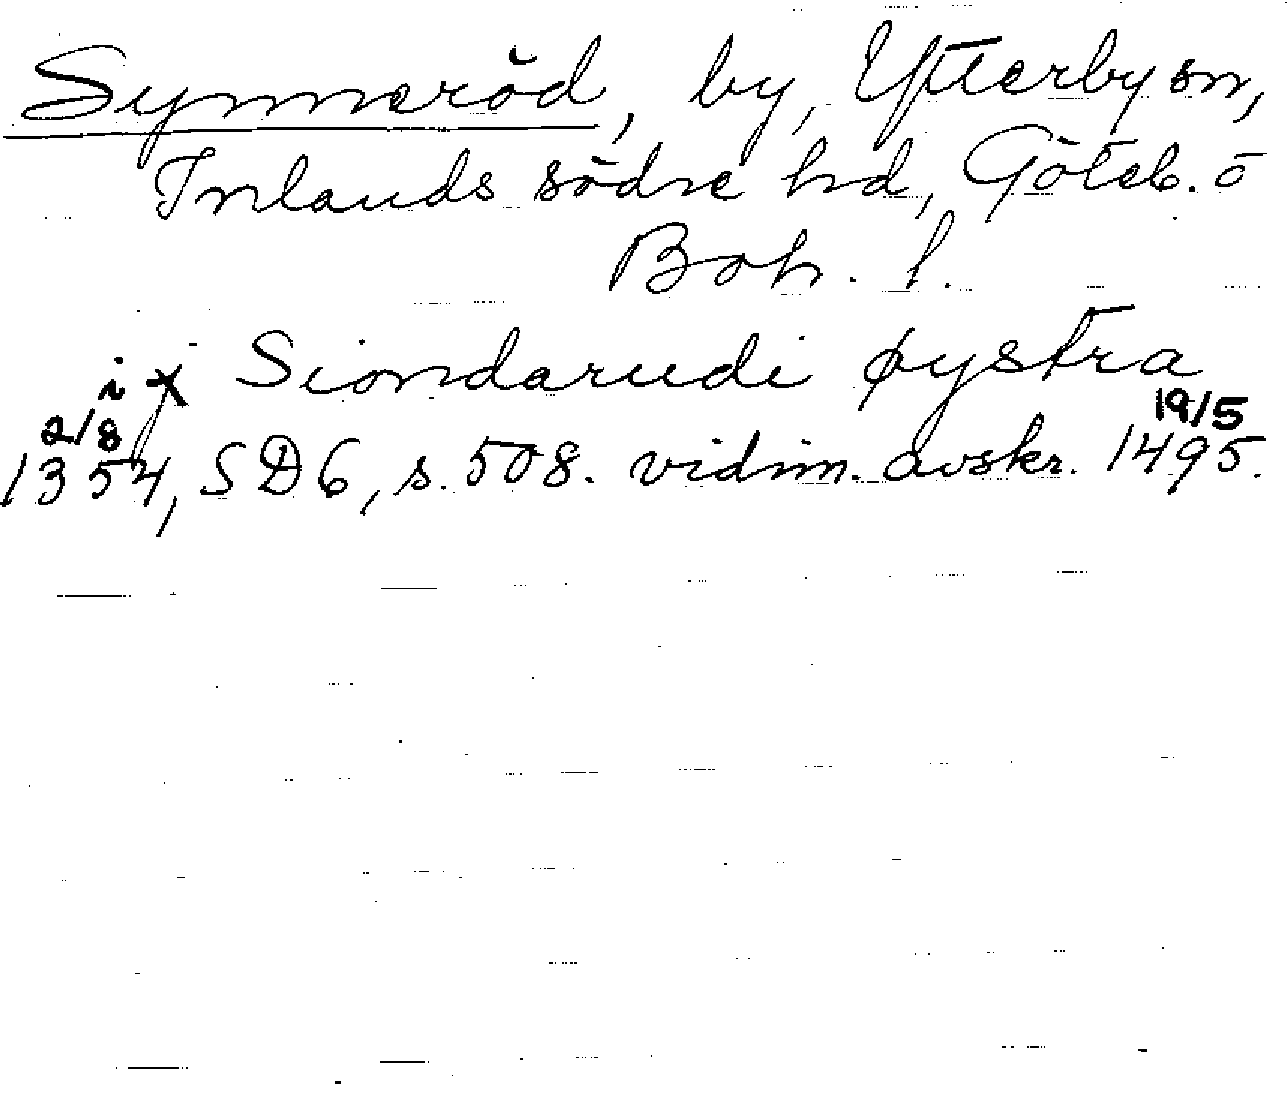 Synneröd, by, Ytterby sn,
Inlands södre hd, Göteb. o
Boh. l.
i x Siondarudi øystra
2/8 19/5
1354, SD6, s. 508. vidim. avskr. 1495.